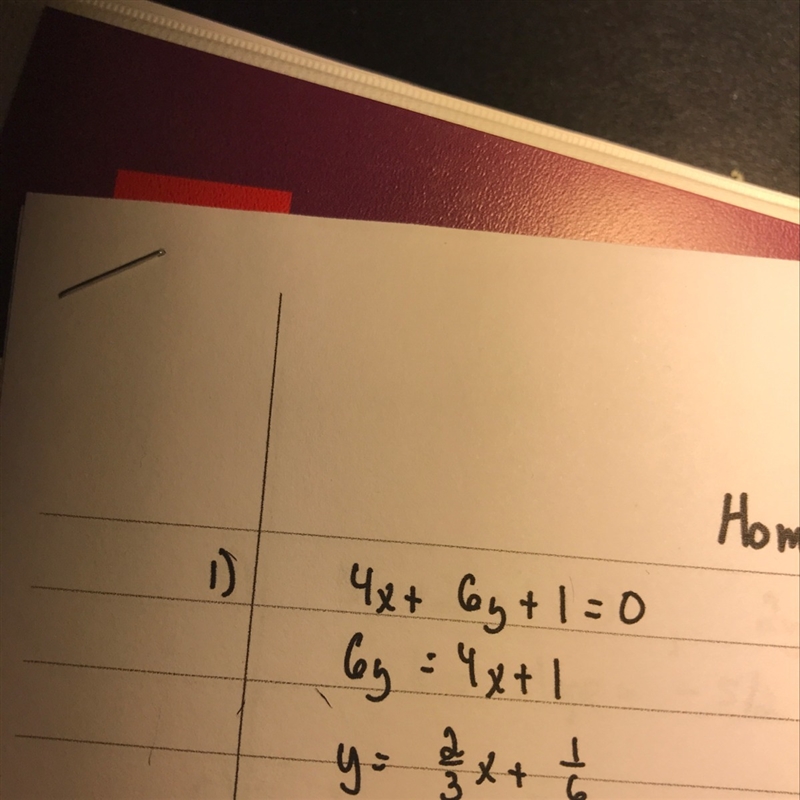 Hom
1) 4x + 6y + 1 = 0
6y = 4x + 1
y = 2/3 x + 1/6